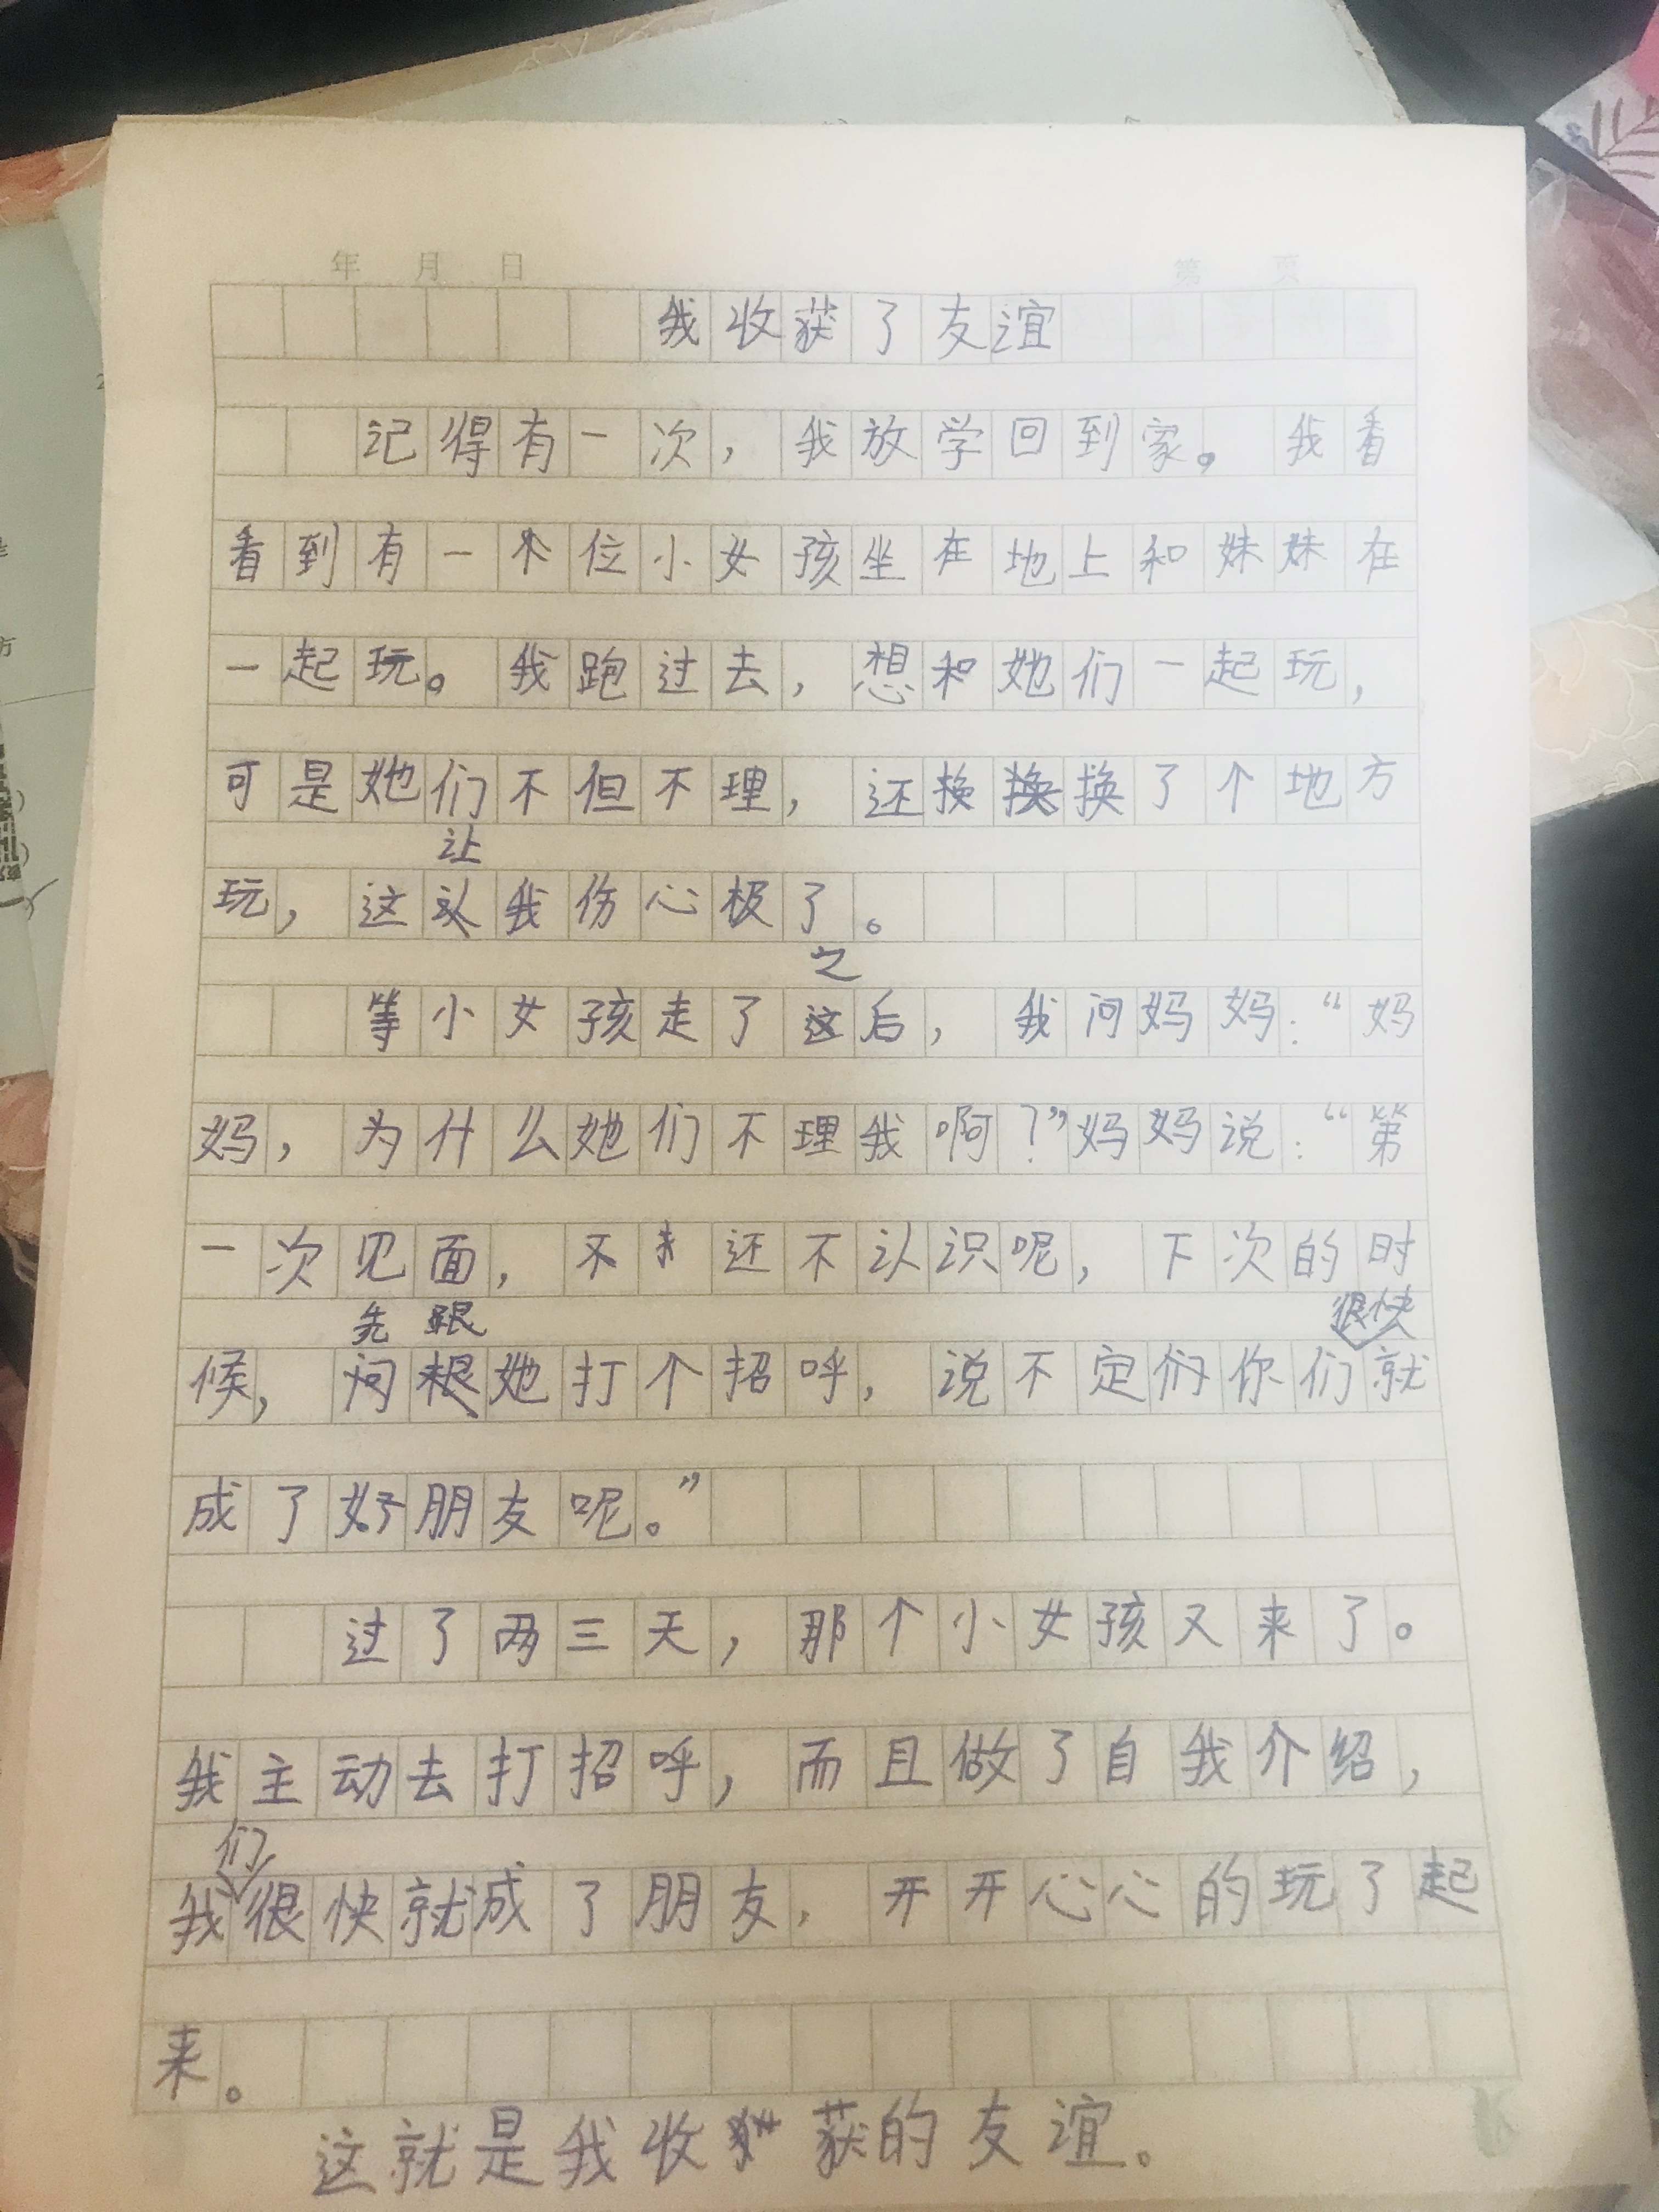 年 月 日 第 页
我收获了友谊
记得有一次，我放学回到家。我看
看到有一个位小女孩坐在地上和妹妹在
一起玩。我跑过去，想和她们一起玩，
可是她们不但不理，还换换换了个地方
让
玩，这认我伤心极了。
之
等小女孩走了这后，我问妈妈：“妈
妈，为什么她们不理我啊？”妈妈说：“第
一次见面，不还不认识呢，下次的时
先跟 很快
候，问根她打个招呼，说不定们你们就
成了好朋友呢。”
过了两三天，那个小女孩又来了。
我主动去打招呼，而且做了自我介绍，
们
我很快就成了朋友，开开心心的玩了起
来。
这就是我收获的友谊。